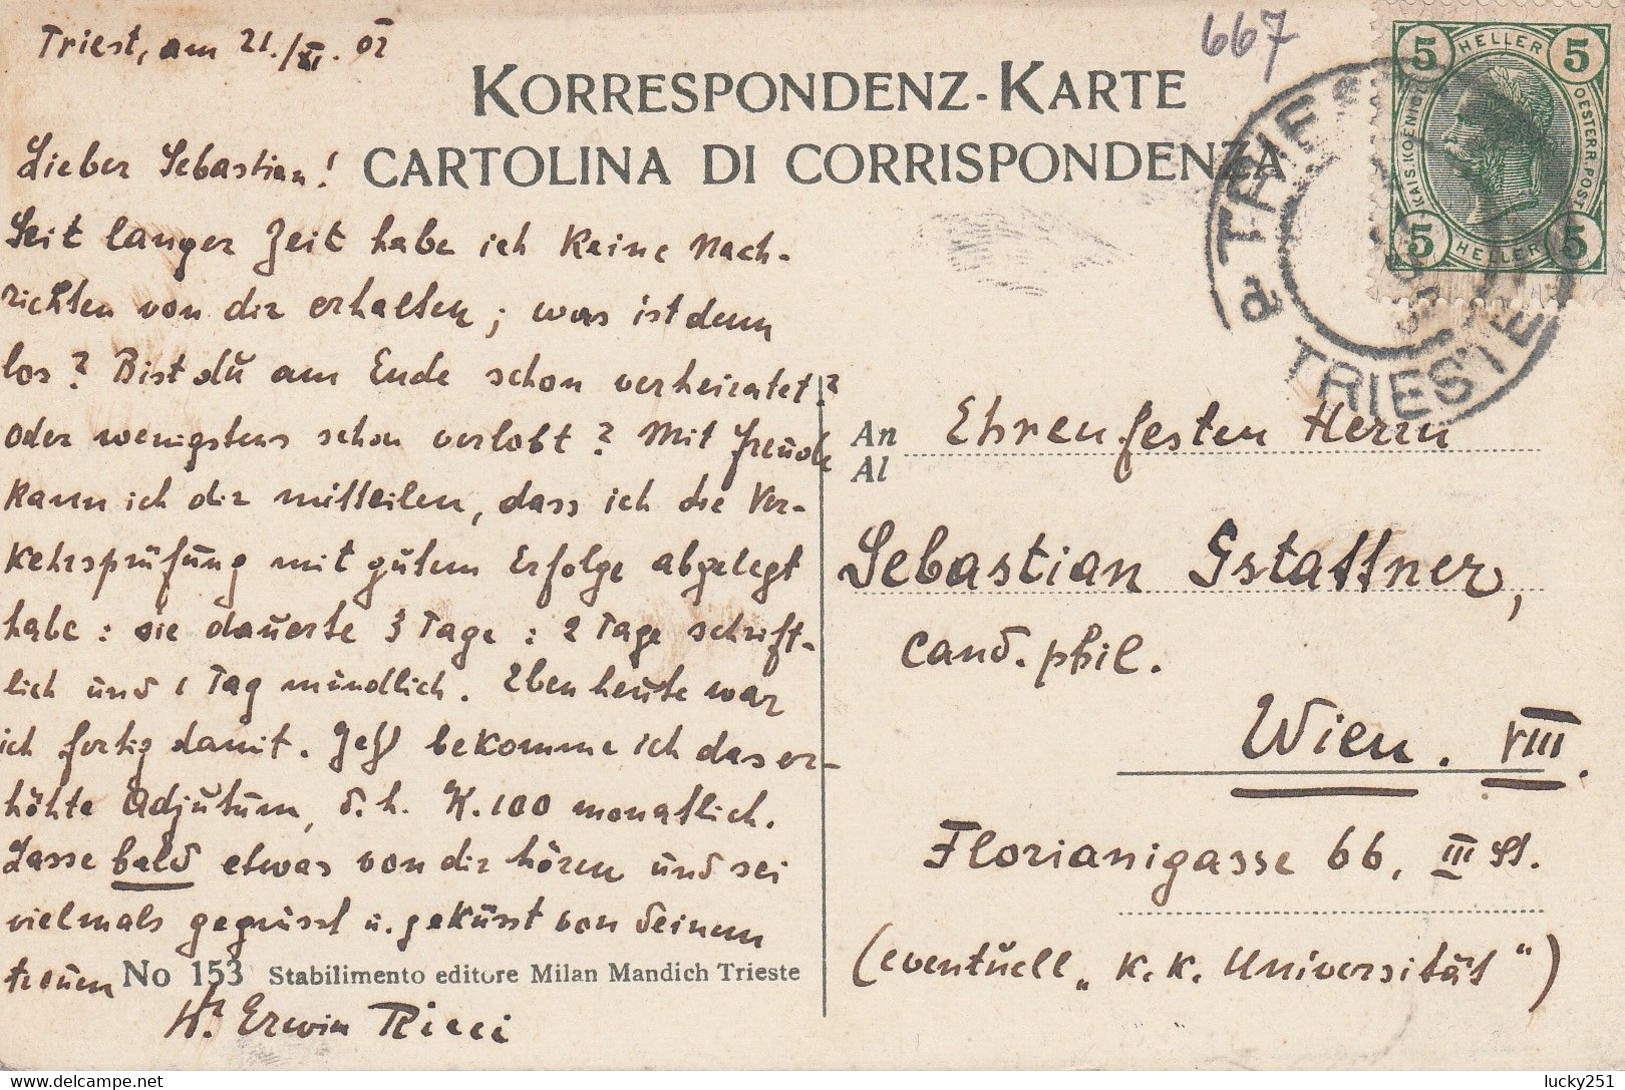 Triest, am 21./XI. 07
667
5 HELLER 5
KAIS. KOENIGL.
OESTERR. POST
5 HELLER 5
TRIESTE
TRIESTE
KORRESPONDENZ-KARTE
CARTOLINA DI CORRISPONDENZA
Lieber Sebastian!
Seit langer Zeit habe ich keine Nach-
richten von dir erhalten; was ist denn
los? Bist du am Ende schon verheiratet?
oder wenigstens schon verlobt? Mit Freude
kann ich dir mitteilen, dass ich die Ver-
kehrsprüfung mit gutem Erfolge abgelegt
habe: sie dauerte 3 Tage: 2 Tage schrift-
lich und 1 Tag mündlich. Eben heute war
ich fertig damit. Jetzt bekomme ich das er-
höhte Adjutum, d. h. K. 100 monatlich.
Lasse bald etwas von dir hören und sei
vielmals gegrüsst u. geküsst von deinem
treuen
Erwin Ricci
No 153 Stabilimento editore Milan Mandich Trieste
An
Al
Ehrenfesten Herrn
Sebastian Gstattner,
cand. phil.
Wien. VIII.
Florianigasse 66, III St.
(eventuell „K. K. Universität“)
lucky251